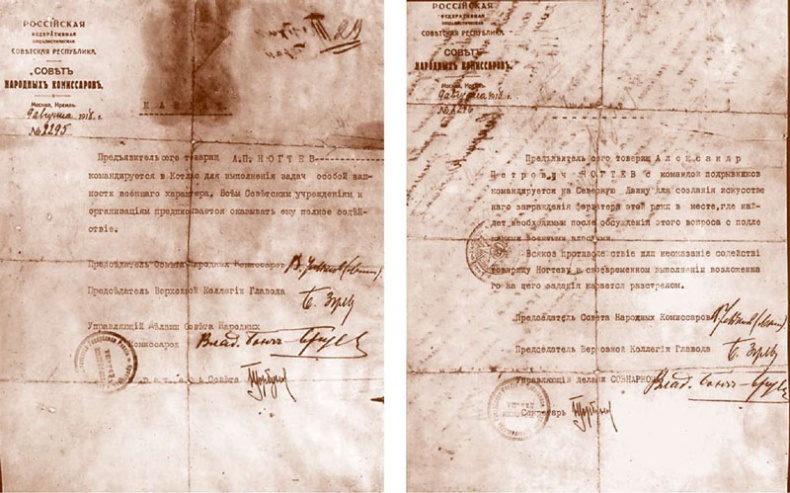 РОССІЙСКАЯ
ФЕДЕРАТИВНАЯ
СОЦІАЛИСТИЧЕСКАЯ
СОВѢТСКАЯ РЕСПУБЛИКА.
СОВѢТЪ
НАРОДНЫХЪ КОМИССАРОВЪ.
Москва, Кремль.
9 августа 1918 г.
№ 2295
Предъявитель сего товарищ А.П. НОГТЕВ
командируется в Котлас для выполнения задач особой важ
ности военнаго характера. Всем Советским учреждениям и
организациям предписывается оказывать ему полное содей-
ствие.
Председатель Совета Народных Комиссаров
Председатель Верховной Коллегии Главода
Управляющий Делами Совета Народных
Комиссаров Влад. Бонч-Бруевич
Совета
РОССІЙСКАЯ
ФЕДЕРАТИВНАЯ
СОЦІАЛИСТИЧЕСКАЯ
СОВѢТСКАЯ РЕСПУБЛИКА.
СОВѢТЪ
НАРОДНЫХЪ КОМИССАРОВЪ.
Москва, Кремль.
9 августа 1918 г.
Предъявитель сего товарищ Александр
Петрович НОГТЕВ с командой подрывников
командируется на Северную Двину для создания искусстве
наго заграждения фарватера этой реки в месте, где най-
дет необходимым после обсуждения этого вопроса с
военными властями.
Всякое противодействие или неоказание содействі
товарищу Ногтеву в своевременном выполнении возложенна
го на него задания карается расстрелом.
Председатель Совета Народных Комиссаров
Председатель Верховной Коллегии Главода
Управляющий делами СОВНАРКОМА Влад. Бонч-Бруевич
Секретарь